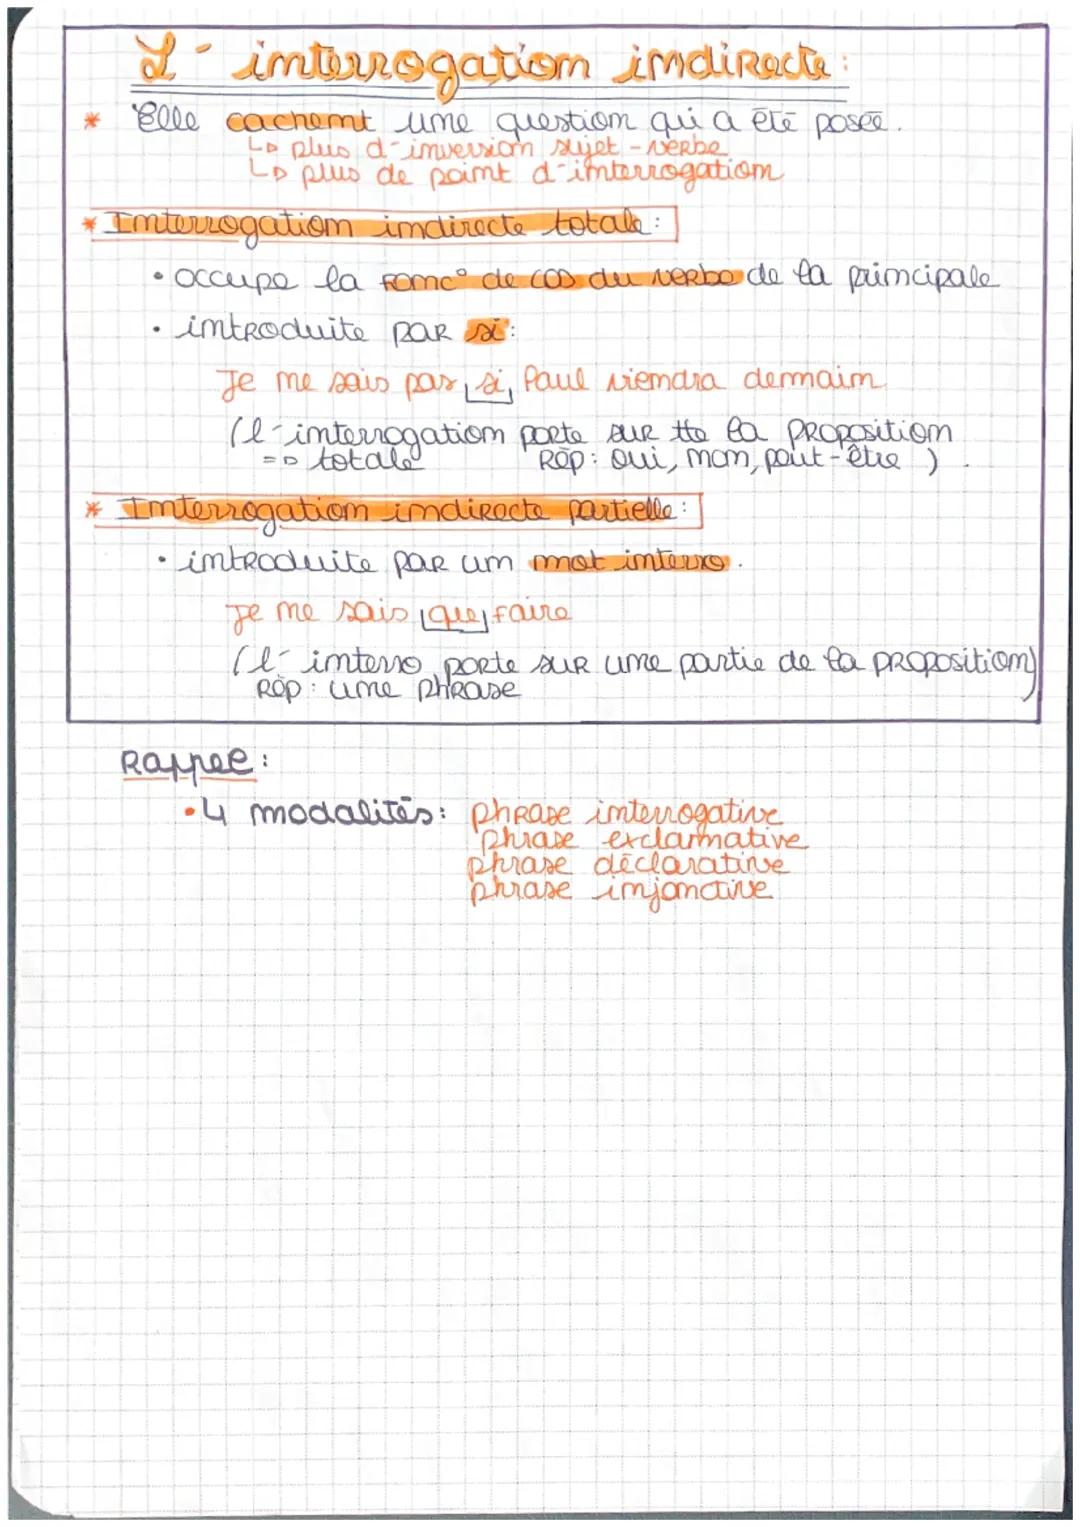 L'interrogation indirecte :
* Elle cachent une question qui a été posée.
↳ plus d'inversion sujet-verbe
↳ plus de point d'interrogation
* Interrogation indirecte totale :
• occupe la fonc° de COS du verbe de la principale
• introduite par si :
Je ne sais pas si Paul viendra demain
(l'interrogation porte sur tte la proposition
=> totale Rép : oui, non, peut-être ).
* Interrogation indirecte partielle :
• introduite par un mot interro.
Je ne sais que faire
(l'interro porte sur une partie de la proposition)
Rép : une phrase
Rappel :
• 4 modalités : phrase interrogative
phrase exclamative
phrase déclarative
phrase injonctive